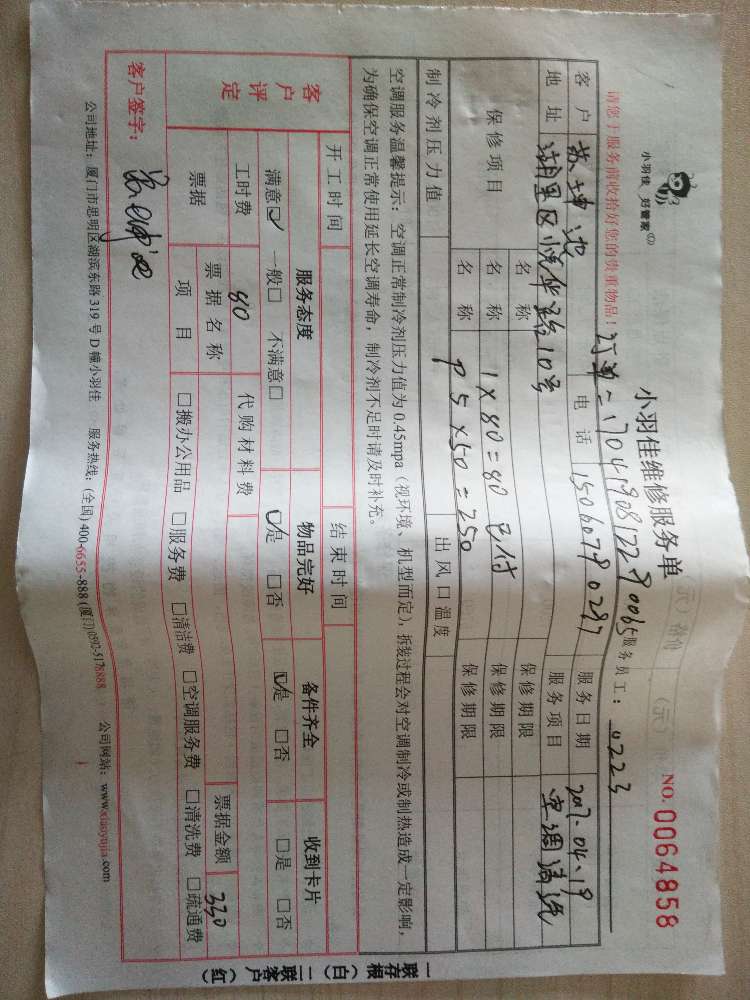 小羽佳 好管家
小羽佳维修服务单
NO. 0064858
请您于服务前收拾好您的贵重物品!
订单: 服务员工: 0223
客户 苏坤池 电话 服务日期 2017.04.19
地址 湖里区悦华路10号 服务项目 空调清洗
保修项目 名称 保修期限
名称 1×80=80 已付 保修期限
名称 P 5×50=250 保修期限
制冷剂压力值 出风口温度
空调服务温馨提示:空调正常制冷剂压力值为0.45mpa(视环境、机型而定),拆装过程会对空调制冷或制热造成一定影响,
为确保空调正常使用延长空调寿命,制冷剂不足时请及时补充。
开工时间 结束时间
客户评定
服务态度 物品完好 备件齐全 收到卡片
满意☑ 一般□ 不满意□ ☑是 □否 ☑是 □否 □是 □否
工时费 80 代购材料费
票据 票据名称 票据金额 330
项目 □搬办公用品 □服务费 □清洁费 □空调服务费 □清洗费 □疏通费
客户签字:
公司地址:厦门市思明区湖滨东路319号D幢小羽佳 服务热线:(全国)400-6655-888(厦门)0592-5178888 公司网站:www.xiaoyujia.com
一联存根(白) 二联客户(红)